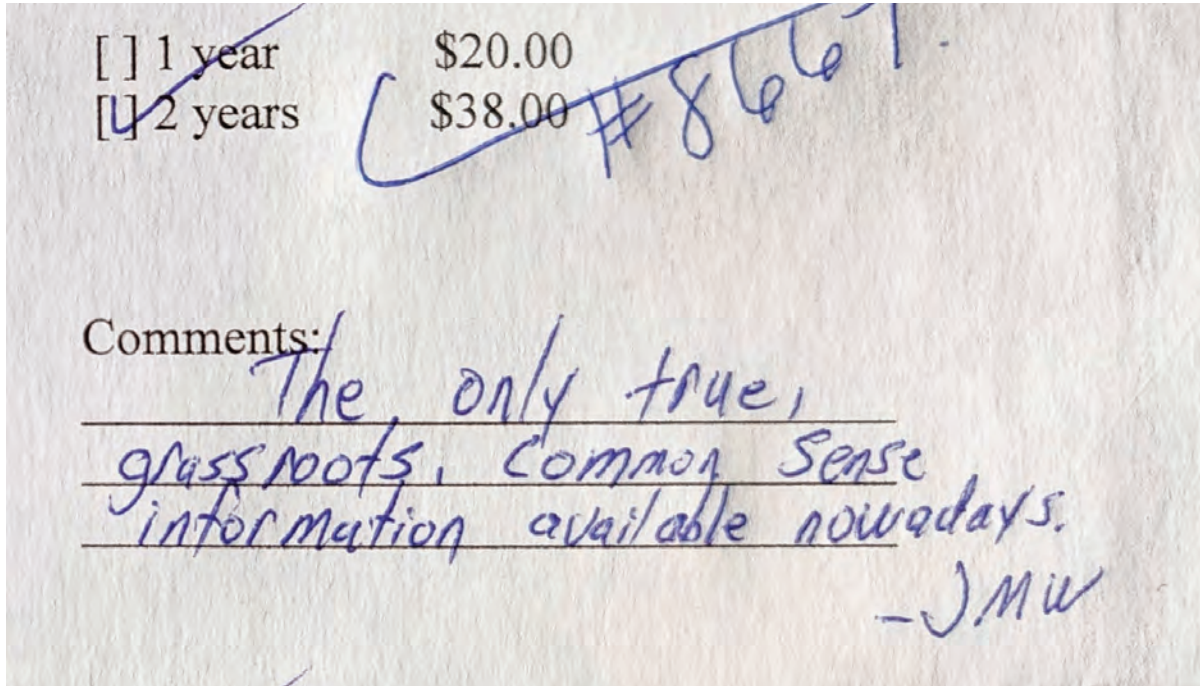 [ ] 1 year $20.00
[✓] 2 years $38.00 #8667
Comments:
The only true,
grassroots, Common Sense
information available nowadays.
-JMW